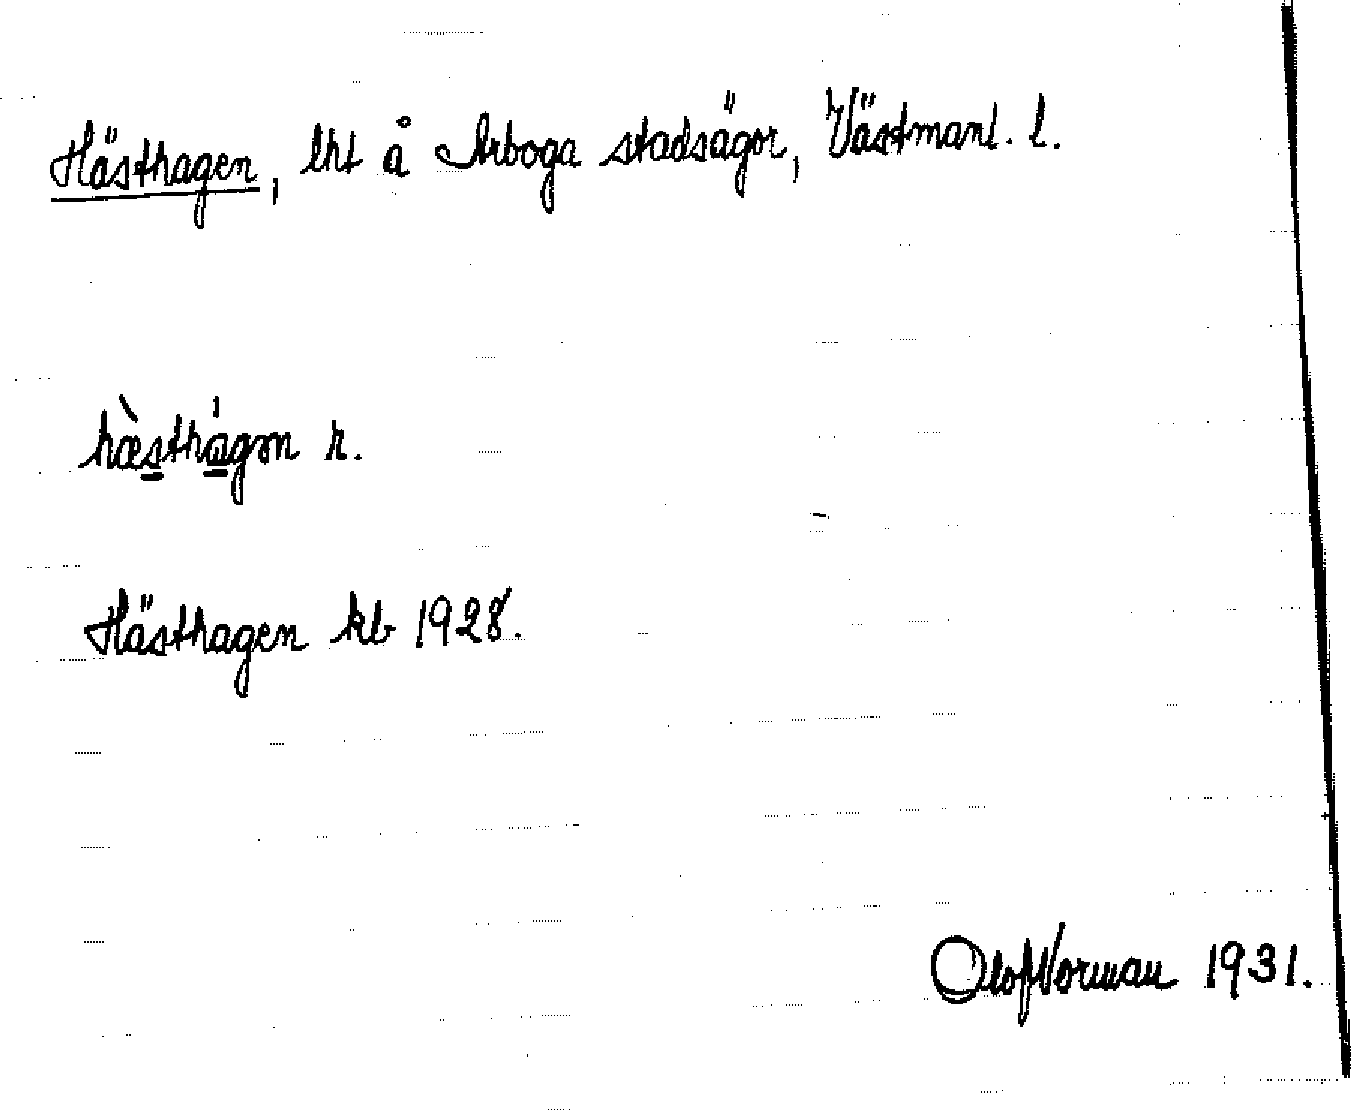 Hästhagen, lht å Arboga stadsägor, Västmanl. l.
hæ̀sthágən r.
Hästhagen kb 1928.
Olof Norman 1931.